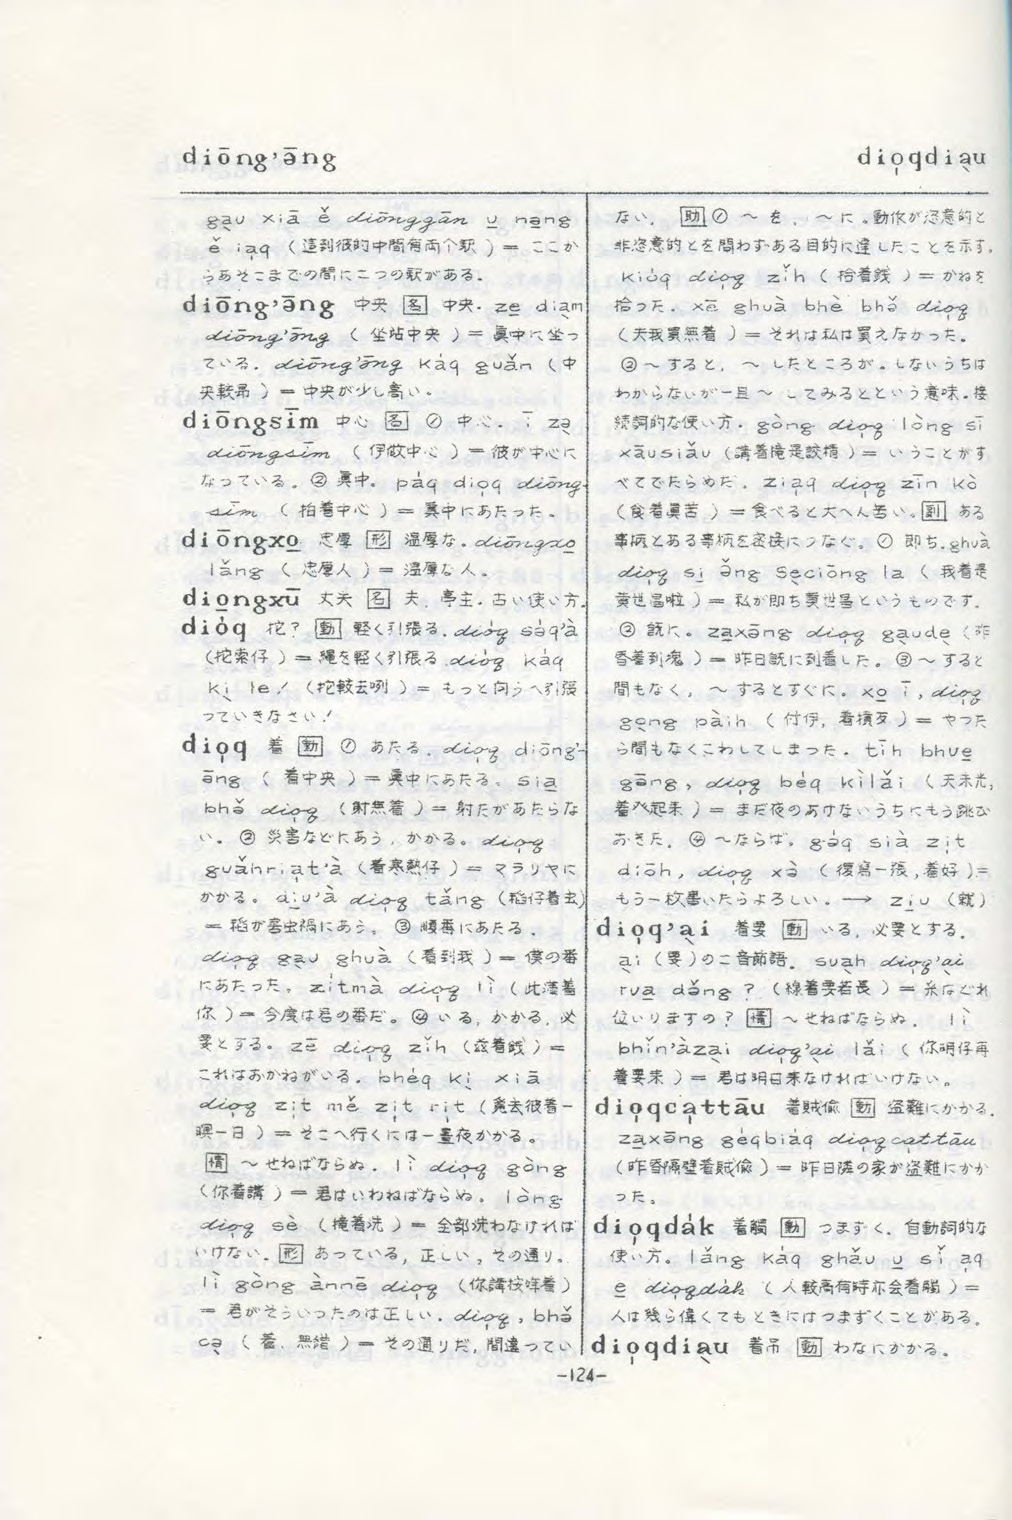 diōng'āng
dio̩qdia̠u
ga̠u xiā ě diōnggān u̠ na̠ng
ě ia̩q (這到彼的中間有両个駅) = ここか
らあそこまでの間に二つの駅がある.
diōng'āng 中央 [名] 中央. ze̠ dia̠m
diōng'āng (坐坫中央) = 真中に坐っ
ている. diōng'āng káq guǎn (中
央較昂) = 中央が少し高い。
diōngsīm 中心 [名] ① 中心. ī zə̠
diōngsīm (伊做中心) = 彼が中心に
なっている. ② 真中. páq dio̩q diōng-
sīm (拍着中心) = 真中にあたった.
diōngxo̠ 忠厚 [形] 温厚な. diōngxo̠
lǎng (忠厚人) = 温厚な人.
dio̠ngxū 丈夫 [名] 夫. 亭主. 古い使い方.
dióq 挓? [動] 軽く引張る. dióq sáq'à
(挓索仔) = 縄を軽く引張る. dióq káq
kì le! (挓較去咧) = もっと向うへ引張
っていきなさい!
dio̩q 着 [動] ① あたる. dio̩q diōng'-
āng (着中央) = 真中にあたる. sia̠
bhə̌ dio̩q (射無着) = 射たがあたらな
い. ② 災害などにあう, かかる. dio̩q
guǎhria̩t'à (着寒熱仔) = マラリヤに
かかる. di̠u'à dio̩q tǎng (稻仔着虫)
= 稻が害虫禍にあう. ③ 順番にあたる.
dio̩q ga̠u ghuà (着到我) = 僕の番
にあたった. zítmà dio̩q lì (此滿着
你) = 今度は君の番だ. ④ いる, かかる, 必
要とする. zē dio̩q zǐh (兹着銭) =
これはおかねがいる. bhéq kì xiā
dio̩q zi̩t mě zi̩t ri̩t (覓去彼着一
暝一日) = そこへ行くには一晝夜かかる。
[情] ～せねばならぬ. lì dio̩q gòng
(你着講) = 君はいわねばならぬ. lòng
dio̩q sè (攏着洗) = 全部洗わなければ
いけない. [形] あっている, 正しい, その通り.
lì gòng ànnē dio̩q (你講按咩着)
= 君がそういったのは正しい. dio̩q, bhə̌
ca̠ (着, 無錯) = その通りだ, 間違ってい
ない. [助] ① ～を, ～に. 動作が恣意的と
非恣意的とを問わずある目的に達したことを示す.
kióq dio̩q zǐh (拾着銭) = かねを
拾った. xē ghuà bhè bhə̌ dio̩q
(夫我買無着) = それは私は買えなかった.
② ～すると, ～したところが. しないうちは
わからないが一旦～してみるとという意味. 接
続詞的な使い方. gòng dio̩q lòng sī
xāusiǎu (講着攏是詨精) = いうことがす
べてでたらめだ. zia̩q dio̩q zīn kò
(食着真苦) = 食べると大へん苦い. [副] ある
事柄とある事柄を密接につなぐ. ① 即ち. ghuà
dio̩q si̠ ə̌ng Se̠ciōng la (我着是
黄世昌啦) = 私が即ち黄世昌というものです.
② 既に. za̠xāng dio̩q ga̠ude̠ (昨
昏着到塊) = 昨日既に到着した. ③ ～すると
間もなく, ～するとすぐに. xo̠ ī, dio̩q
go̠ng pàih (付伊, 着摃歹) = やった
ら間もなくこわしてしまった. tīh bhue̠
gāng, dio̩q béq kìlǎi (天未光,
着癶起来) = まだ夜のあけないうちにもう跳び
おきた. ④ ～ならば. gáq sià zi̩t
diōh, dio̩q xà (復寫一張, 着好) =
もう一枚書いたらよろしい. → zi̠u (就)
dio̩q'a̠i 着要 [動] いる, 必要とする.
a̠i (要) の二音節語. sua̠h dio̩q'a̠i
rua̠ də̌ng? (線着要若長) = 糸はどれ
位いりますの? [情] ～せねばならぬ. lì
bhǐn'àza̠i dio̩q'a̠i lǎi (你明仔再
着要来) = 君は明日来なければいけない.
dio̩qca̩ttāu 着賊偸 [動] 盗難にかかる.
za̠xāng géqbiáq dio̩qca̩ttāu
(昨昏隔壁着賊偸) = 昨日隣の家が盗難にかか
った.
dio̩qdák 着觸 [動] つまずく. 自動詞的な
使い方. lǎng káq ghǎu u̠ sǐ a̩q
e̠ dio̩qdák (人較高有時亦会着觸) =
人は幾ら偉くてもときにはつまずくことがある.
dio̩qdia̠u 着吊 [動] わなにかかる.
-124-